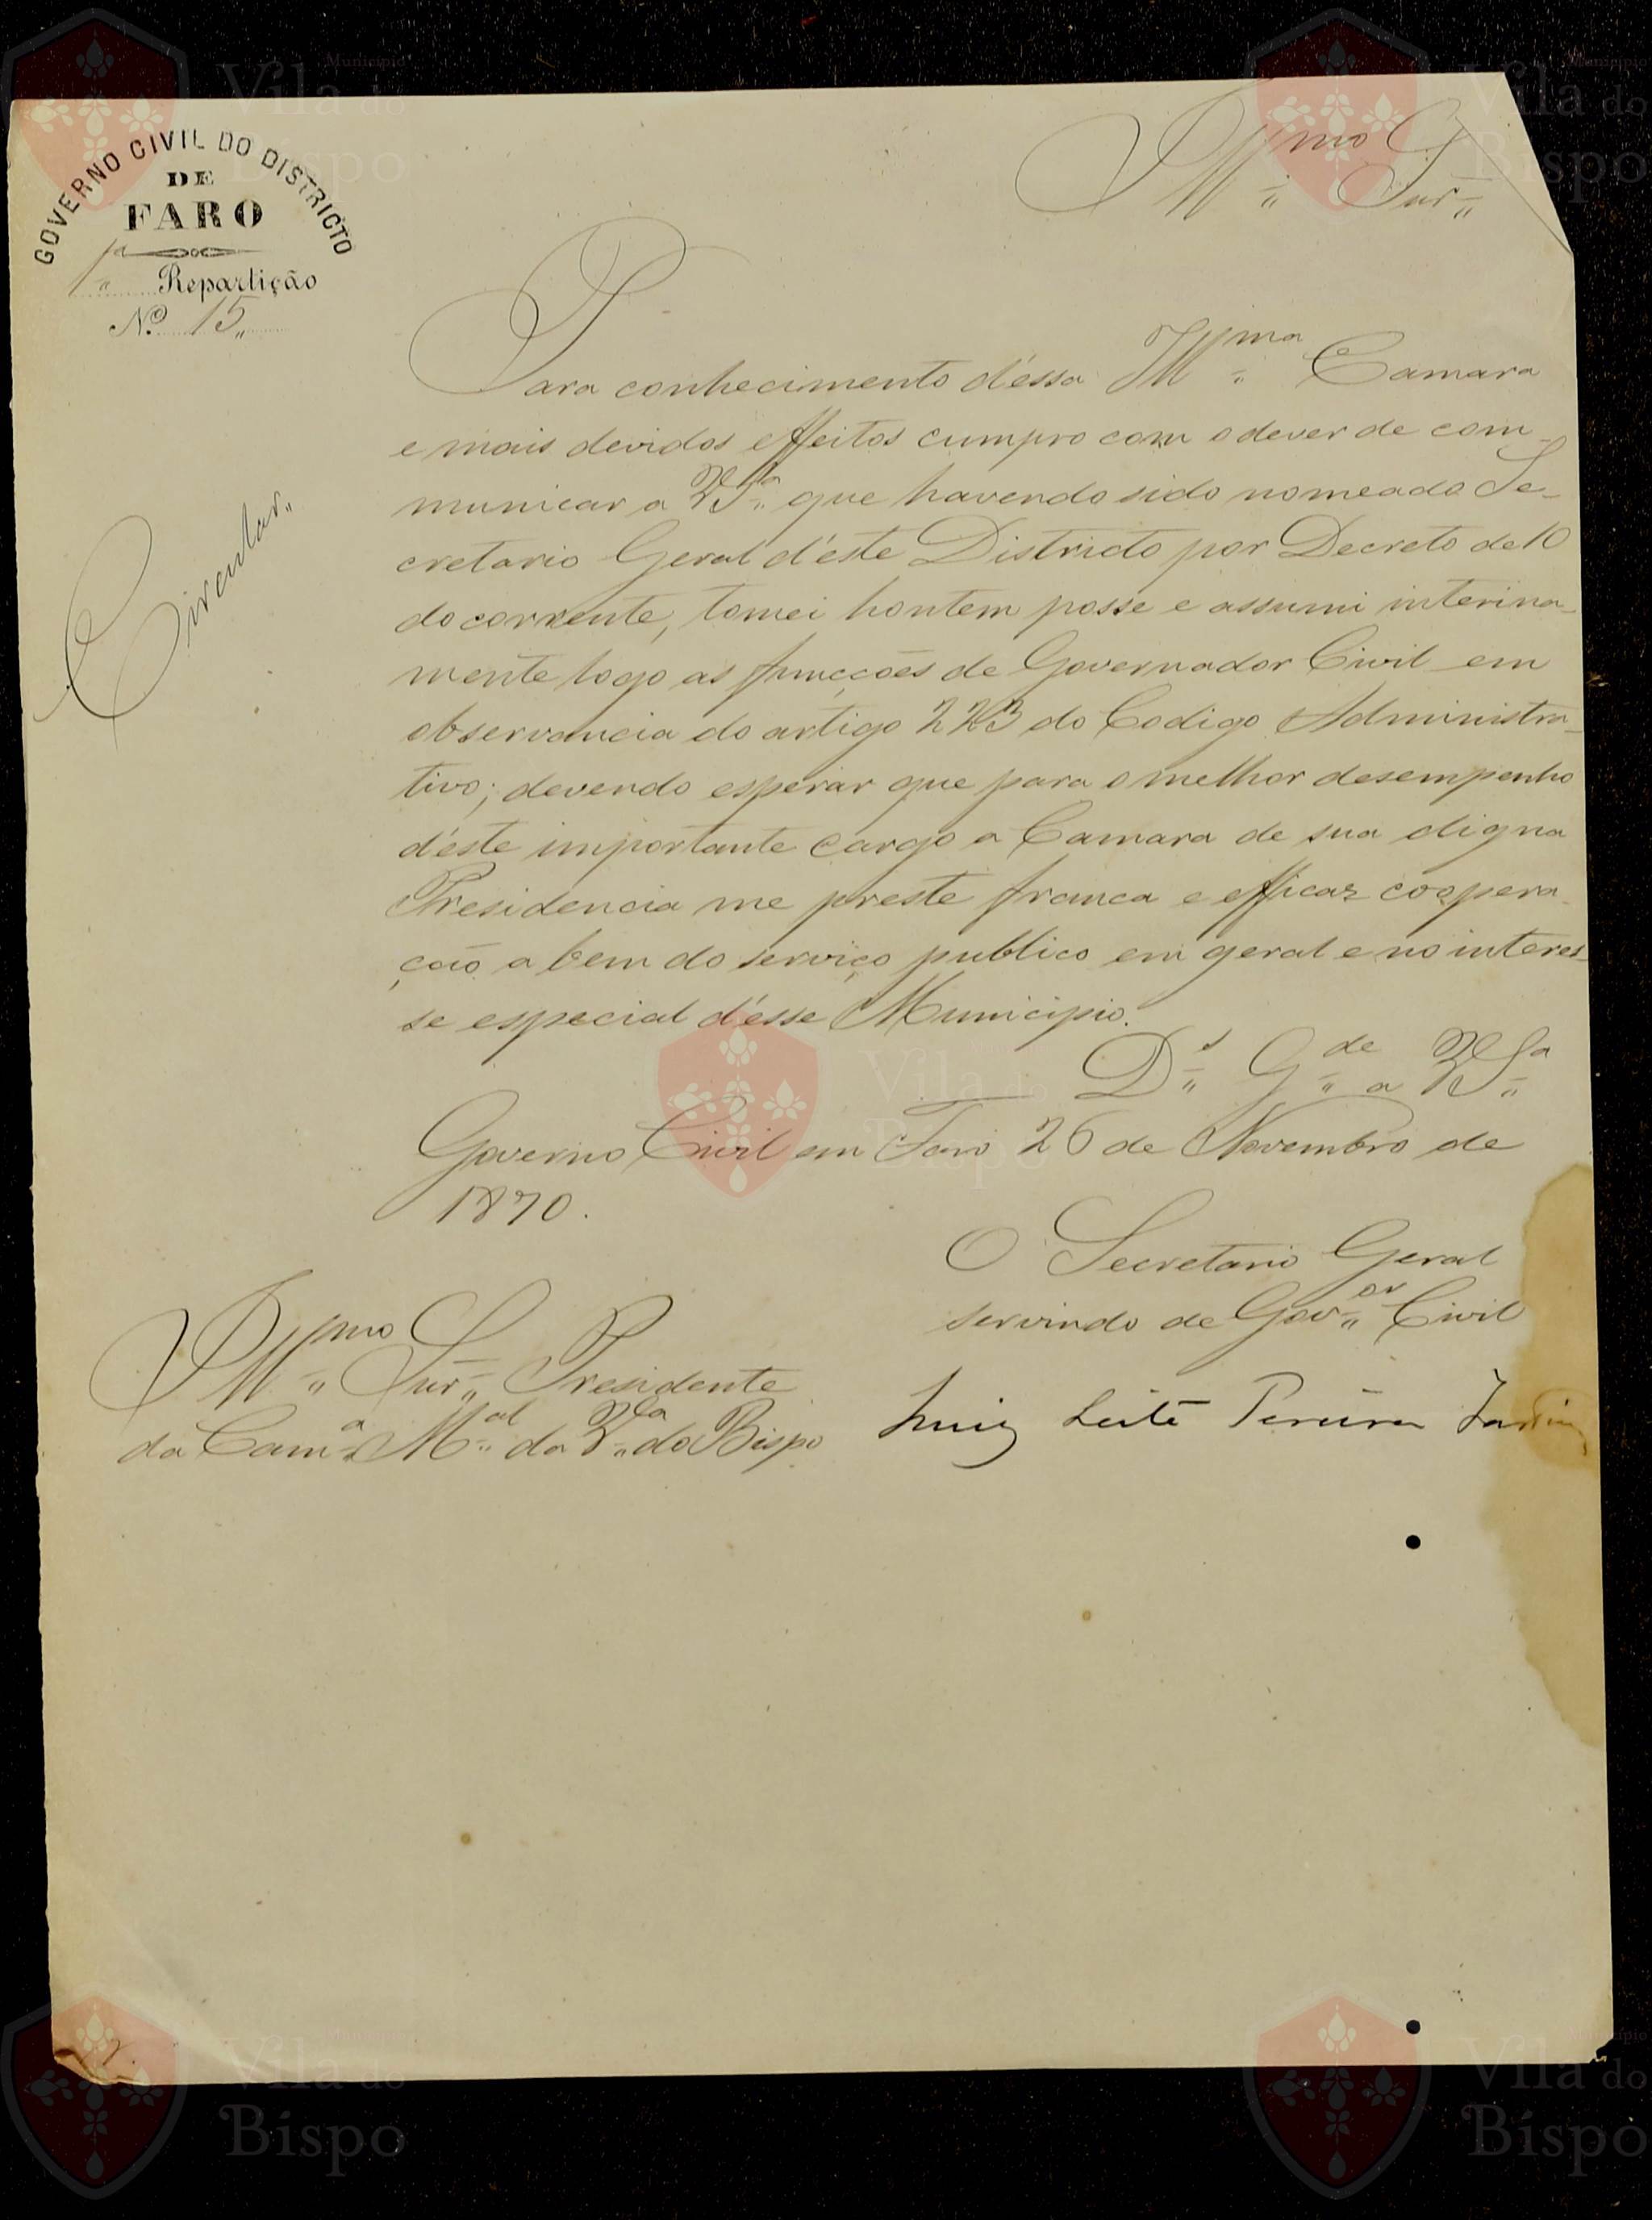 GOVERNO CIVIL DO DISTRICTO
DE
FARO
1ª Repartição
Nº 15
Illmo Snr
Circular
Para conhecimento d'éssa Illma Camara
e mais devidos effeitos cumpro com o dever de com-
municar a VSª que havendo sido nomeado Se-
cretario Geral d'éste Districto por Decreto de 10
do corrente, tomei hontem posse e assumi interina-
mente logo as funcções de Governador Civil em
observancia do artigo 223 do Codigo Administra-
tivo; devendo esperar que para o melhor desempenho
d'éste importante cargo a Camara de sua digna
Presidencia me preste franca e efficaz coopera-
ção a bem do serviço publico em geral e no interes-
se especial d'ésse Municipio.
Ds Gde a VSª
Governo Civil em Faro 26 de Novembro de
1870.
O Secretario Geral
servindo de Govor Civil
Luiz Leite Pereira Jardim
Illmo Snr Presidente
da Camª Mal da Vlª do Bispo
Município
Vila do
Bispo